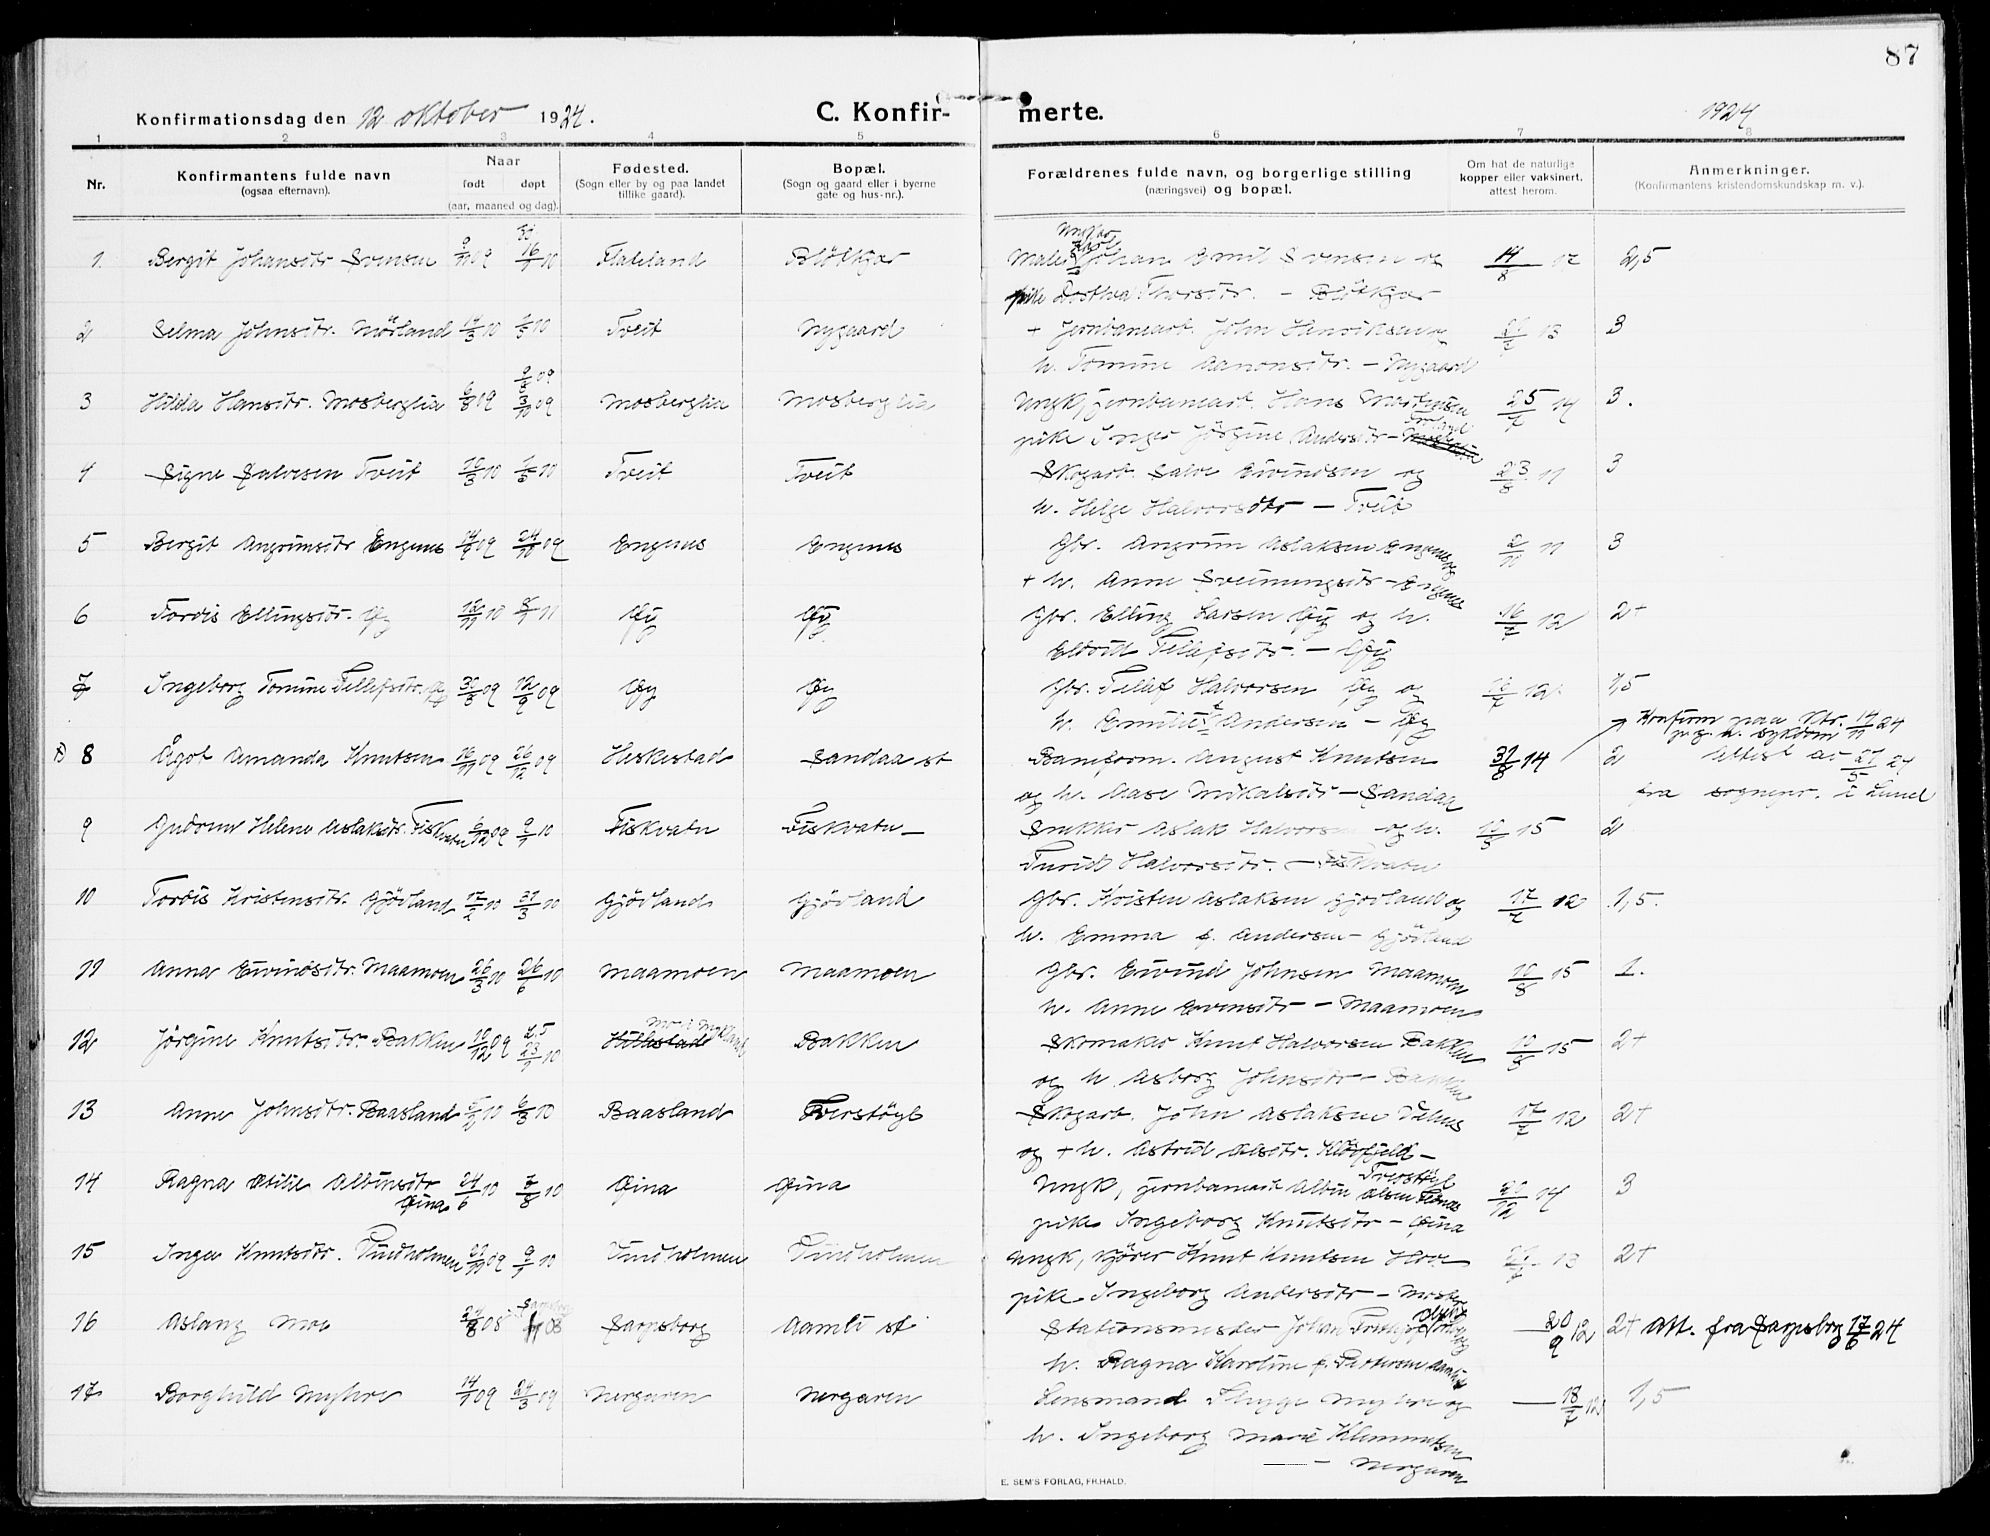 87
Konfirmationsdag den 12 oktober 1924.
C. Konfir-
merte.
1924
1 2 3 4 5 6 7 8
Nr.
Konfirmantens fulde navn
(ogsaa efternavn).
Naar
født døpt
(aar, maaned og dag).
Fødested.
(Sogn eller by og paa landet
tillike gaard).
Bopæl.
(Sogn og gaard eller i byerne
gate og hus-nr.).
Forældrenes fulde navn, og borgerlige stilling
(næringsvei) og bopæl.
Om hat de naturlige
kopper eller vaksinert,
attest herom.
Anmerkninger.
(Konfirmantens kristendomskundskap m. v.).
1. Bergit Johansdtr Svensen 9/11 09 16/1 10 Flateland Blötkjær Maler Johan Emil Svensen og 14/8 2,5
pike Dorthea Thorsdtr. - Blötkjær
2 Selma Johnsdtr. Mörland 14/3 10 /5 10 Tveit Nygaard + Jernbanearb. John Henriksen og 13 3
h. Tomine Aanonsdtr. - Nygaard
3 Hilda Hansdtr. Mosberglia 6/8 09 3/10 09 Mosberglia Mosberglia Ungk, jernbanearb. Hans Mortensen 25/7 14 3.
pike Inger Jörgine Andersdtr -
4 Signe Salvesen Tveit /3 10 /5 10 Tveit Tveit Skogarb. Salve Eivindsen og 23/8 11 3
h. Helge Halvorsdtr - Tveit
5 Bergit Angrimsdtr Engenes 14/9 09 24/10 09 Engenes Engenes Gbr. Angrim Aslaksen Engenes og 2/11 11 3
+ h. Anne Sveinungsdtr - Engenes
6 Tordis Ellingsdtr. Øy 12/11 10 8/1 11 Øy Øy Gbr. Elling Larsen Øy og h. 16/7 12 2+
Eldrid Tellefsdtr. - Øy
7 Ingeborg Tomine Tellefsdtr. Øy 30/3 09 12/9 09 Øy Øy Gbr. Tellef Halvorsen Øy og 16/7 12. 1,5
h. Emilie f. Andersen - Øy
Konfirm paa Ktr. 14/11 24
pr. g. a. sykdom
8 Ågot Amanda Knutsen 16/11 09 26/12 09 Heskestad Sandaa st Baneform. August Knutsen 31/8 14 2 Attest av 27/5 24
og h. Aase Mikalsdtr - Sandaa fra sognepr. i Lund
9 Gudrun Helene Aslaksdtr. Fiskvatn 6/12 09 9/1 10 Fiskvatn Fiskvatn Snekker Aslak Halvorsen og h. 15 2
Turid Halvorsdtr. - Fiskvatn
10 Tordis Kristensdtr. Gjövland 17/2 10 31/3 10 Gjövland Gjövland Gbr. Kristen Aslaksen Gjövland og 17/7 12 1,5.
h. Emma f. Andersen - Gjövland
11 Anna Eivindsdtr. Maamoen 26/3 10 26/6 10 Maamoen Maamoen Gbr. Eivind Johnsen Maamoen 10/8 15 1.
h. Anne Evensdtr - Maamoen
12 Jörgine Knutsdtr. Bakken 10/12 09 23/1 10 Mo i Mykland Bakken Skomaker Knut Halvorsen Bakken 10/8 15 2+
og h. Asborg Johnsdtr - Bakken
13 Anne Johnsdtr. Baasland /2 10 6/3 10 Baasland Tverstöyl Skogarb. John Aslaksen 17/7 12 2+
og + h. Astrid Olsdtr. -
Tverstöyl
14 Ragna Otilie Albinsdtr Øina 24/6 10 7/8 10 Øina Øina Ungk, jernbanearb Albin Olsen 14 3
pike Ingeborg Knutsdtr - Øina
15 Inger Knutsdtr. Tindholmen 09 9/1 10 Tindholmen Tindholmen Ungk, kjörer Knut Knutsen 13 2+
pike Ingeborg Andersdtr -
16 Aslaug Moe 08 08 Sarpsborg Aamli st Stationsmester Johan 20/9 12 2+ Att. fra Sarpsborg 17/6 24
h. Ragna Karoline f. Pettersen Aamli st
17 Borghild Myhre 14/1 09 24/3 09 Nergaren Nergaren Lensmand Thygge Myhre og 18/7 12 1,5
h. Ingeborg Marie Klemmetsen
- Nergaren
E. SEM'S FORLAG, FR.HALD.